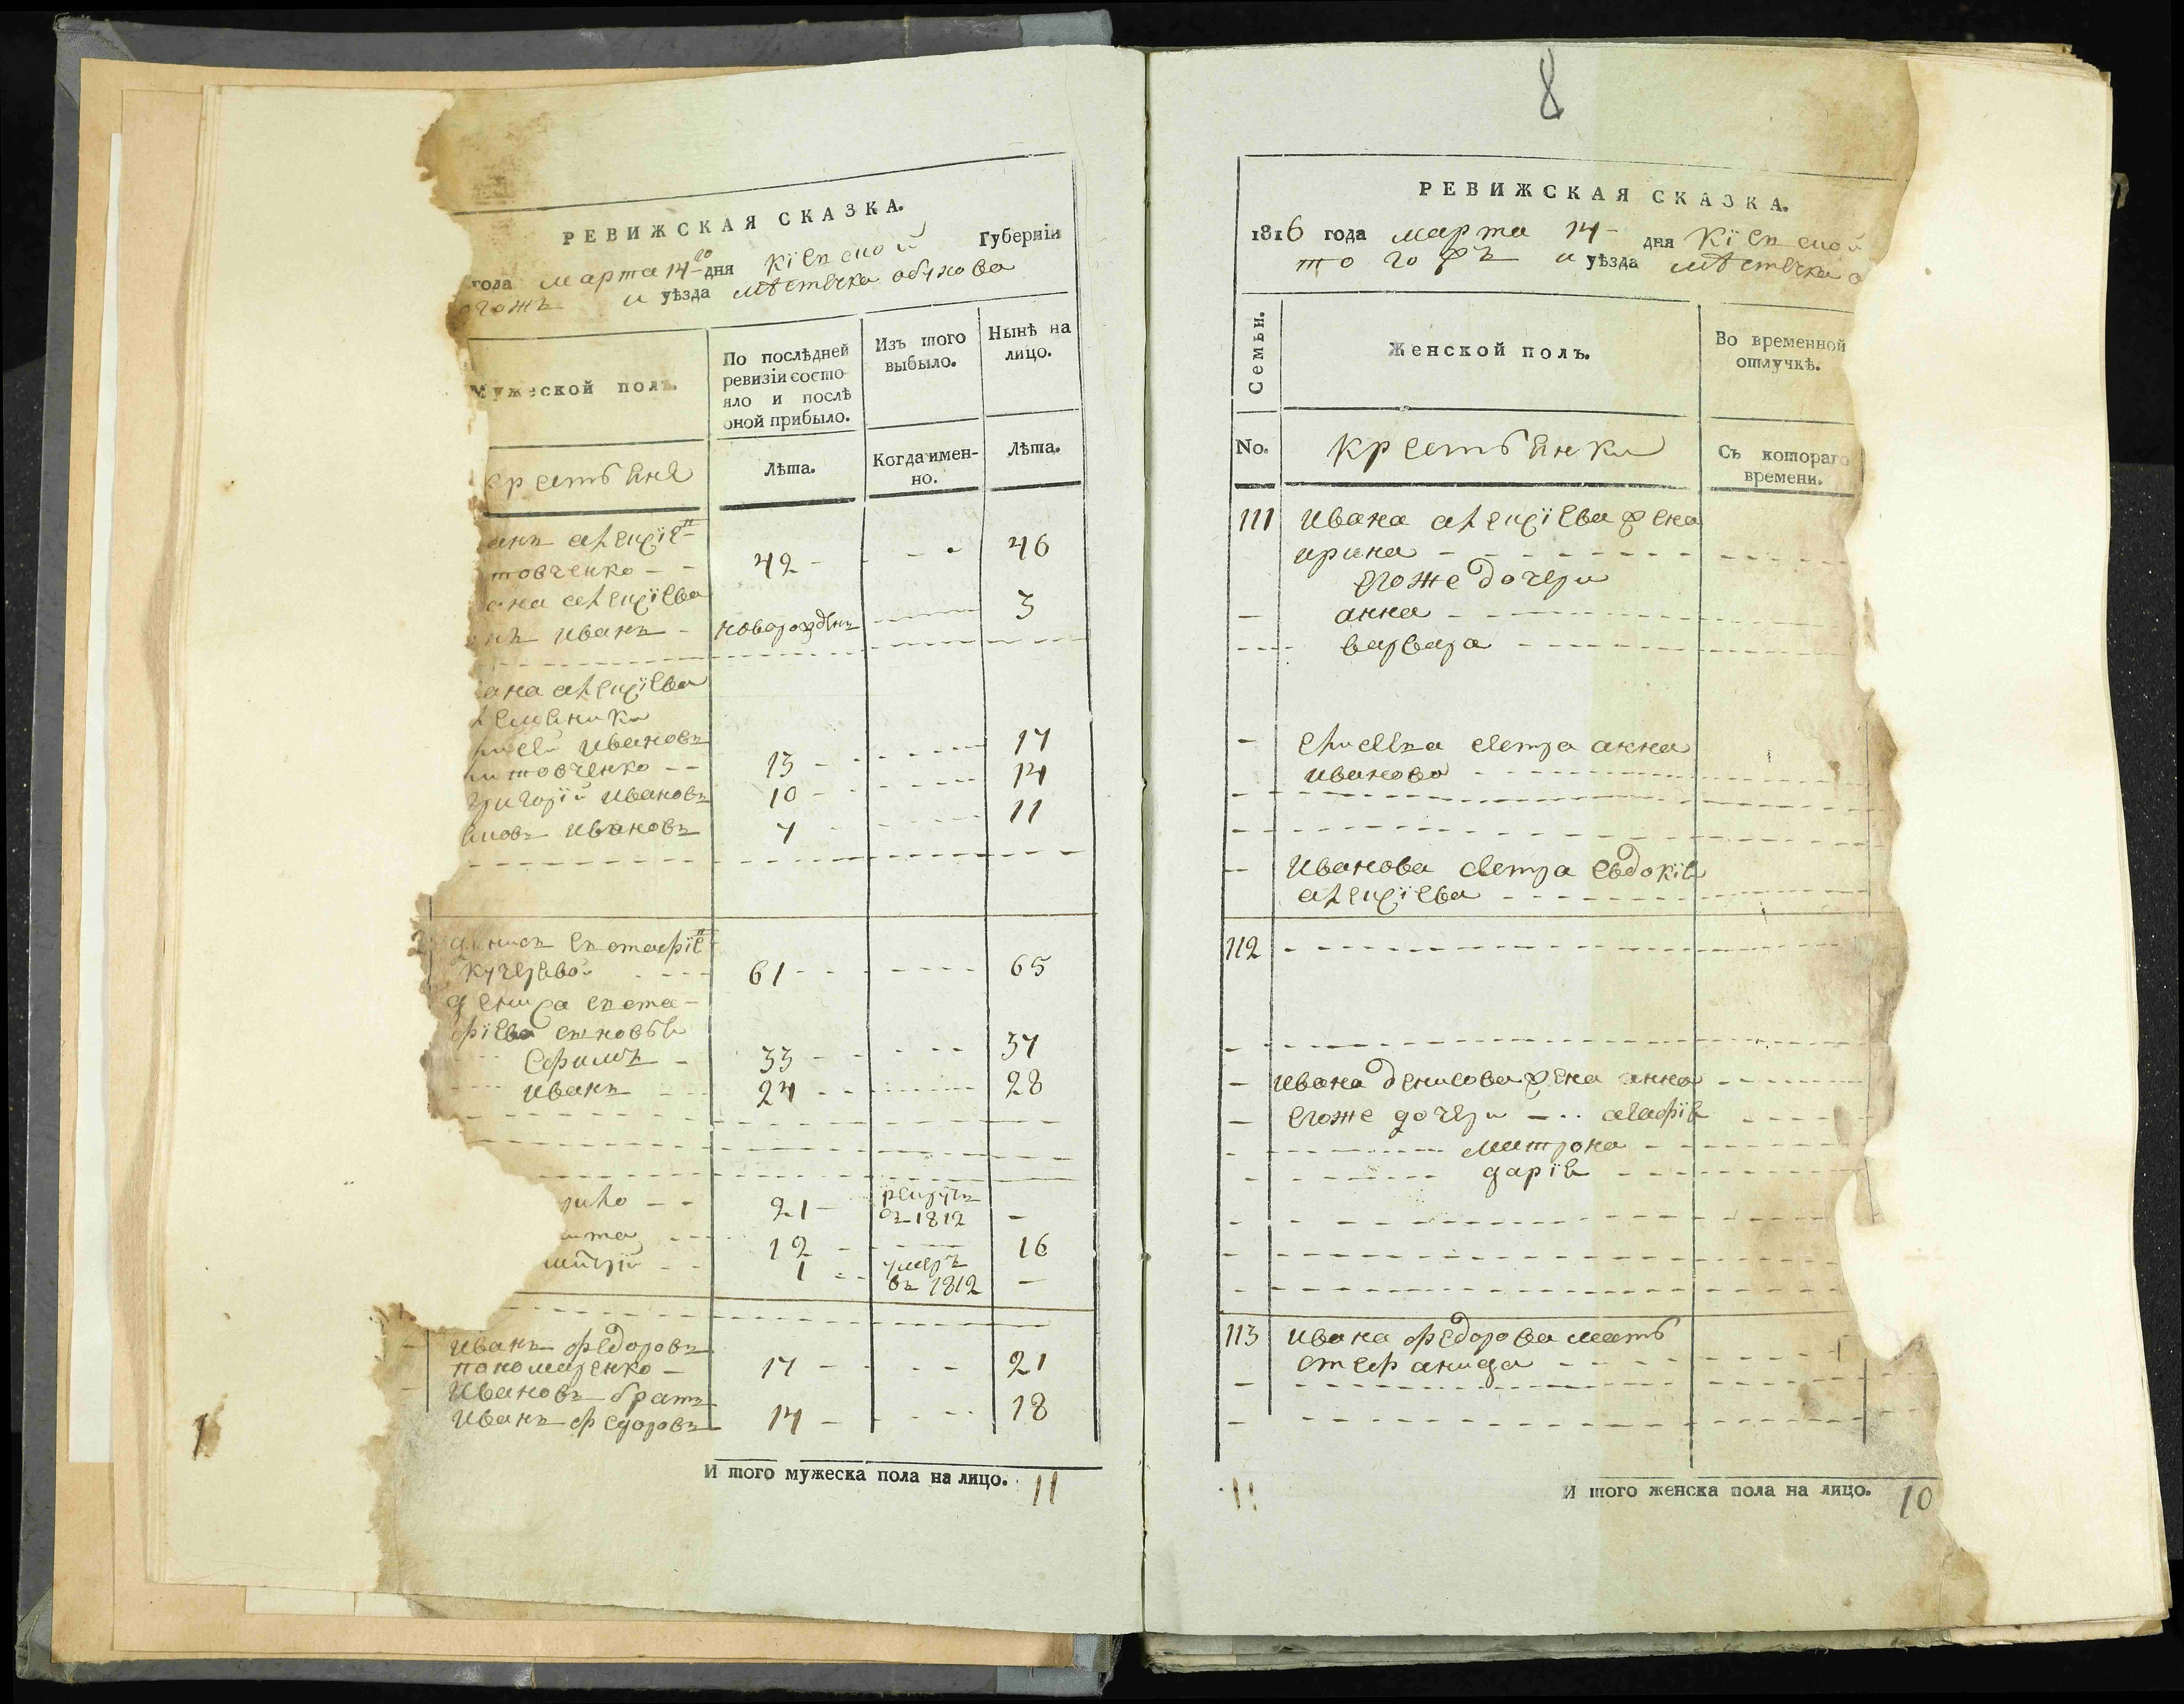 РЕВИЖСКАЯ СКАЗКА.
года марта 14 го дня Кіевской Губерніи
и уѣзда мѣстечка обухова
Мужеской полъ.
По послѣдней
ревизіи состо-
яло и послѣ
оной прибыло.
Изъ того
выбыло.
Нынѣ на
лицо.
Лѣта.
Когда имен-
но.
Лѣта.
товченко 42 46
иванъ новорожденъ 3
ивановъ 17
товченко 13
григорій ивановъ 10 14
ивановъ 7 11
евстафіев
кучерявой 61 65
дениса евста-
фіева сыновья
ефимъ 33 37
иванъ 24 28
21 рекрутъ
въ 1812
12 16
1 умеръ
въ 1812
иванъ федоровъ
пономаренко 17 21
ивановъ братъ
иванъ федоровъ 14 18
И того мужеска пола на лицо. 11
8
РЕВИЖСКАЯ СКАЗКА.
1816 года марта 14 дня Кіевской
того жъ и уѣзда мѣстечка о
Семьи.
Женской полъ.
Во временной
отлучкѣ.
No.
крестьянки
Съ котораго
времени.
111 ивана алексіева жена
ирина
егоже дочери
анна
варвара
сестра анна
иванова
иванова сестра евдокія
алексіева
112
ивана денисова жена анна
егоже дочери агафія
матрона
дарія
113 ивана федорова мать
стефанида
11
И того женска пола на лицо. 10